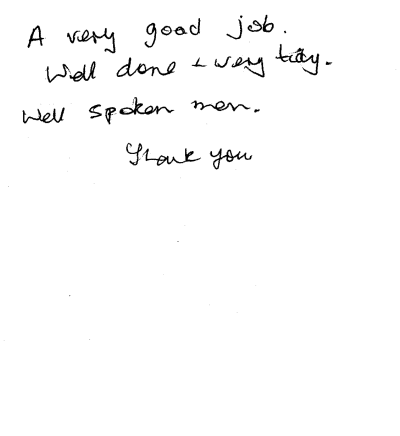 A very good job.
Well done + very tidy.
Well spoken men.
Thank you